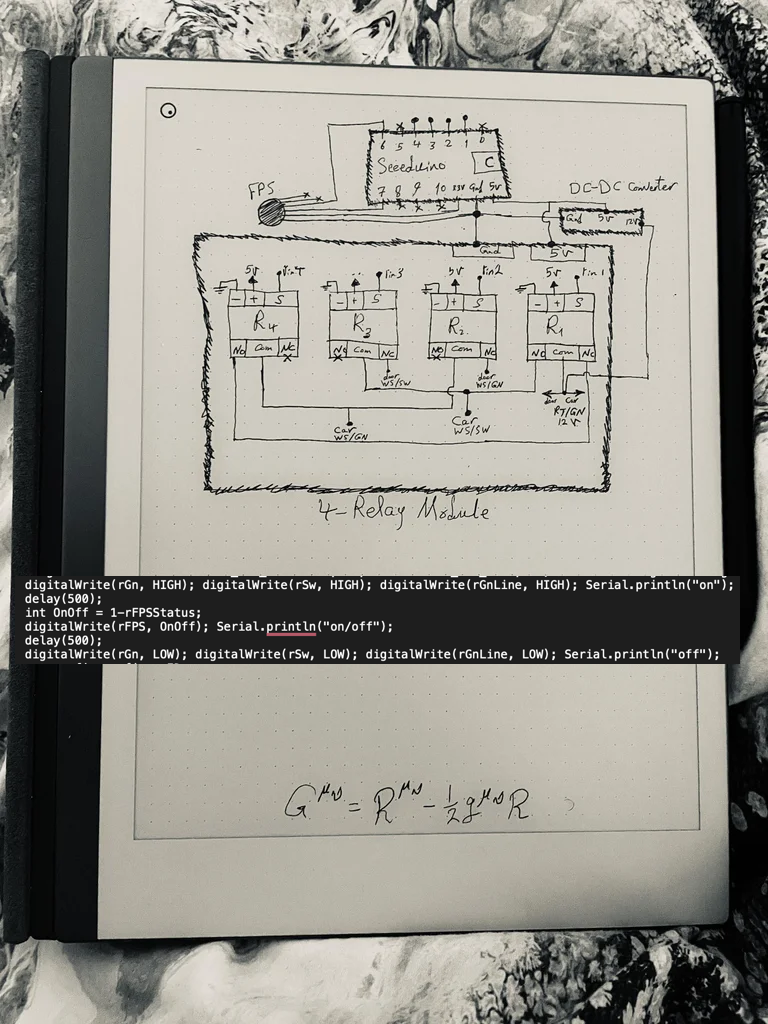 6 5 4 3 2 1 0
Seeeduino C
7 8 9 10 33V Gnd 5V
FPS
DC-DC Converter
Gnd 5V 12V
Gnd 5V
5V Pin4 .. Pin3 5V Pin2 5V Pin1
- + S - + S - + S - + S
R4 R3 R2 R1
NO Com NC NO Com NC NO Com NC NO Com NC
door WS/SW door WS/GN door Car
RT/GN
12V
Car WS/GN Car WS/SW
4-Relay Module
digitalWrite(rGn, HIGH); digitalWrite(rSw, HIGH); digitalWrite(rGnLine, HIGH); Serial.println("on");
delay(500);
int OnOff = 1-rFPSStatus;
digitalWrite(rFPS, OnOff); Serial.println("on/off");
delay(500);
digitalWrite(rGn, LOW); digitalWrite(rSw, LOW); digitalWrite(rGnLine, LOW); Serial.println("off");
G^μν = R^μν - 1/2 g^μν R